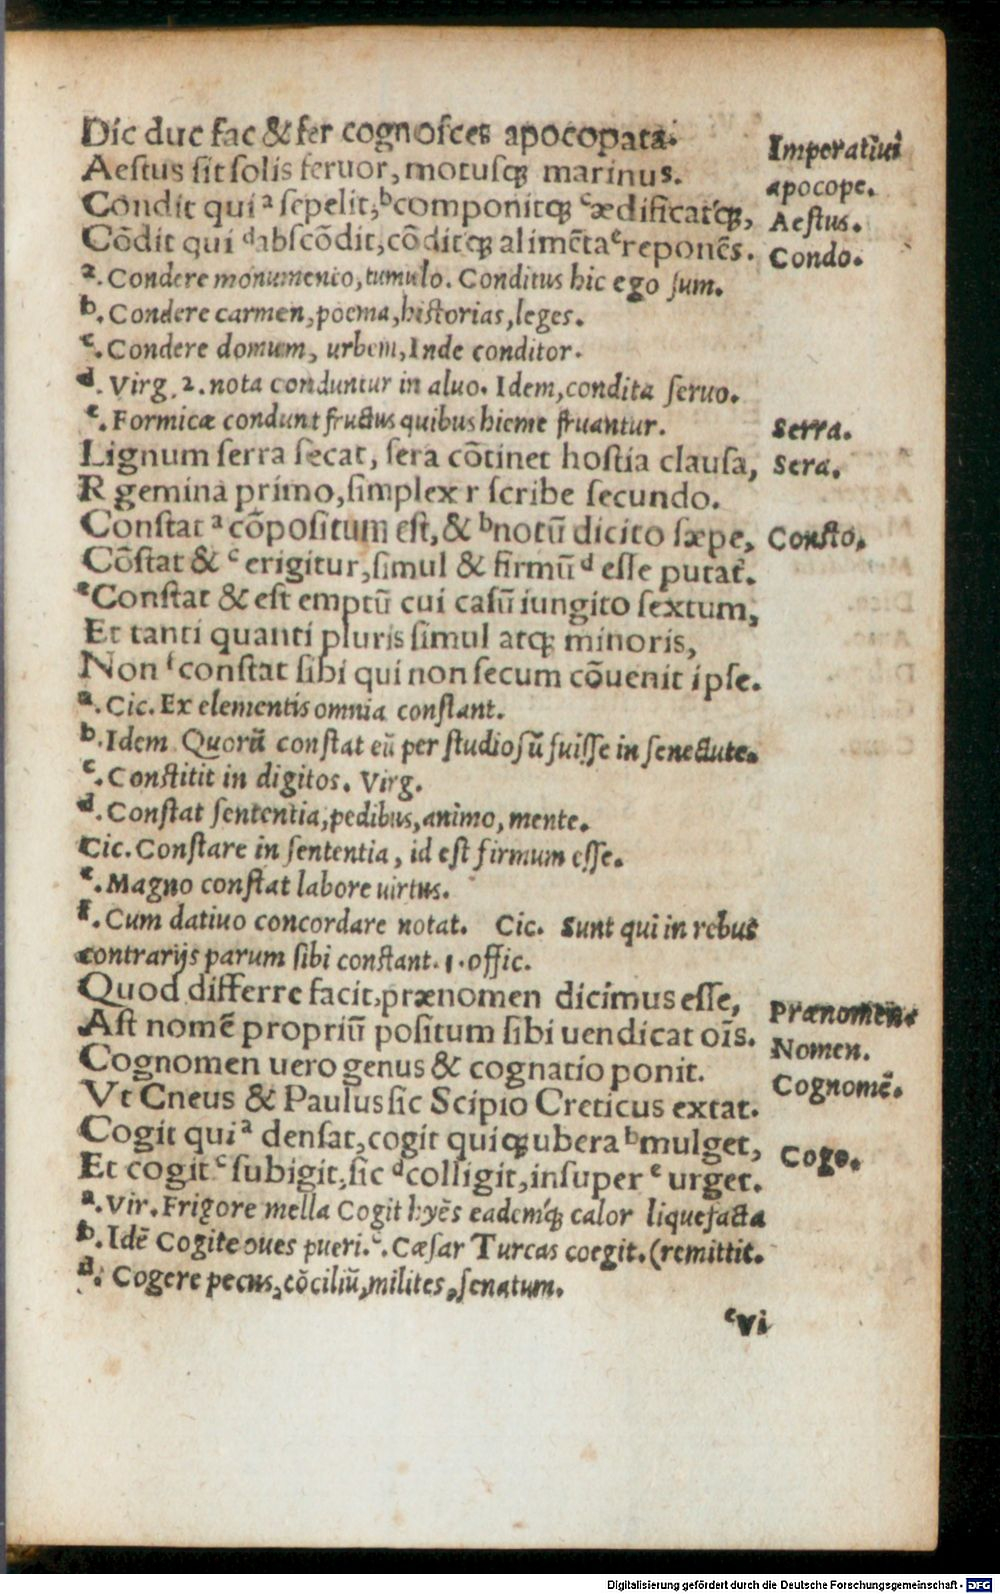 Dic duc fac & fer cognosces apocopata.
Imperatiui
Aestus sit solis feruor, motusꝗ marinus.
apocope.
Condit qui ᵃ sepelit, ᵇcomponitꝗ ᶜædificatꝗ,
Aestus.
Cōdit qui ᵈabscōdit, cōditꝗ alimēta ᵉreponēs.
Condo.
ᵃ. Condere monumento, tumulo. Conditus hic ego sum.
ᵇ. Condere carmen, poema, historias, leges.
ᶜ. Condere domum, urbem, Inde conditor.
ᵈ. Virg. 2. nota conduntur in aluo. Idem, condita seruo.
ᵉ. Formicæ condunt fructus quibus hieme fruantur.
Serra.
Lignum serra secat, sera cōtinet hostia clausa,
Sera.
R gemina primo, simplex r scribe secundo.
Constat ᵃ cōpositum est, & ᵇnotū dicito sæpe,
Consto.
Cōstat & ᶜ erigitur, simul & firmū ᵈ esse putat.
ᵉConstat & est emptū cui casū iungito sextum,
Et tanti quanti pluris simul atꝗ minoris,
Non ᶠconstat sibi qui non secum cōuenit ipse.
ᵃ. Cic. Ex elementis omnia constant.
ᵇ. Idem Quorū constat eū per studiosū fuisse in senectute.
ᶜ. Constitit in digitos. Virg.
ᵈ. Constat sententia, pedibus, animo, mente.
Cic. Constare in sententia, id est firmum esse.
ᵉ. Magno constat labore uirtus.
ᶠ. Cum datiuo concordare notat. Cic. Sunt qui in rebus
contrarijs parum sibi constant. 1. offic.
Quod differre facit, prænomen dicimus esse,
Prænomen.
Ast nomē propriū positum sibi uendicat oīs.
Nomen.
Cognomen uero genus & cognatio ponit.
Cognomē.
Vt Cneus & Paulus sic Scipio Creticus extat.
Cogit qui ᵃ densat, cogit quiꝗ ubera ᵇmulget,
Cogo.
Et cogit ᶜsubigit, sic ᵈcolligit, insuper ᵉ urget.
ᵃ. Vir. Frigore mella Cogit hyēs eademꝗ́ calor liquefacta
ᵇ. Idē Cogite oues pueri. ᶜ. Cæsar Turcas coegit. (remittit.
ᵈ. Cogere pecus, cōciliū, milites, senatum.
ᵉVi
Digitalisierung gefördert durch die Deutsche Forschungsgemeinschaft - DFG